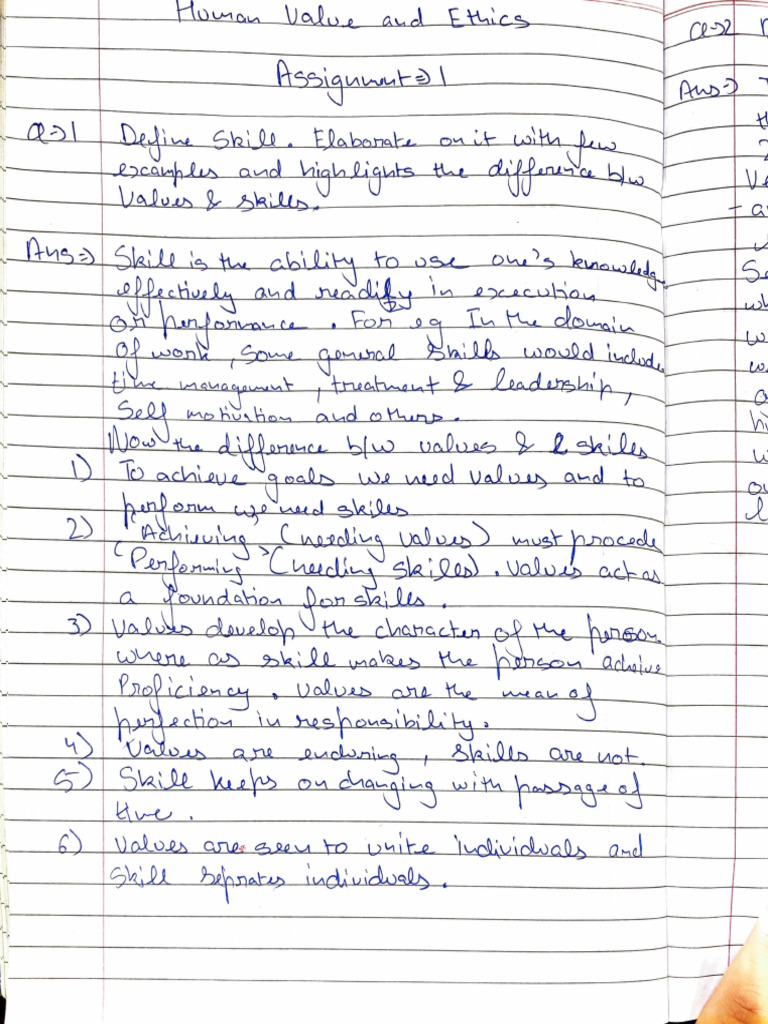 Human Value and Ethics
Assignment ⇒ 1
Q⇒1 Define Skill. Elaborate on it with few
examples and highlights the difference b/w
Values & skills.
Ans⇒ Skill is the ability to use one's knowledge
effectively and readily in execution
or performance. For eg In the domain
of work, some general skills would include
time management, treatment & leadership,
Self motivation and others.
Now the difference b/w values & skills
1) To achieve goals we need values and to
perform we need skills
2) "Achieving" (needing values) must procede
"Performing" (needing skills). Values act as
a foundation for skills.
3) Values develop the character of the person
where as skill makes the person acheive
Proficiency. Values are the mean of
perfection in responsibility.
4) Values are enduring, skills are not.
5) Skill keeps on changing with passage of
time.
6) Values are seen to unite individuals and
Skill seprates individuals.
Q⇒2
Ans⇒